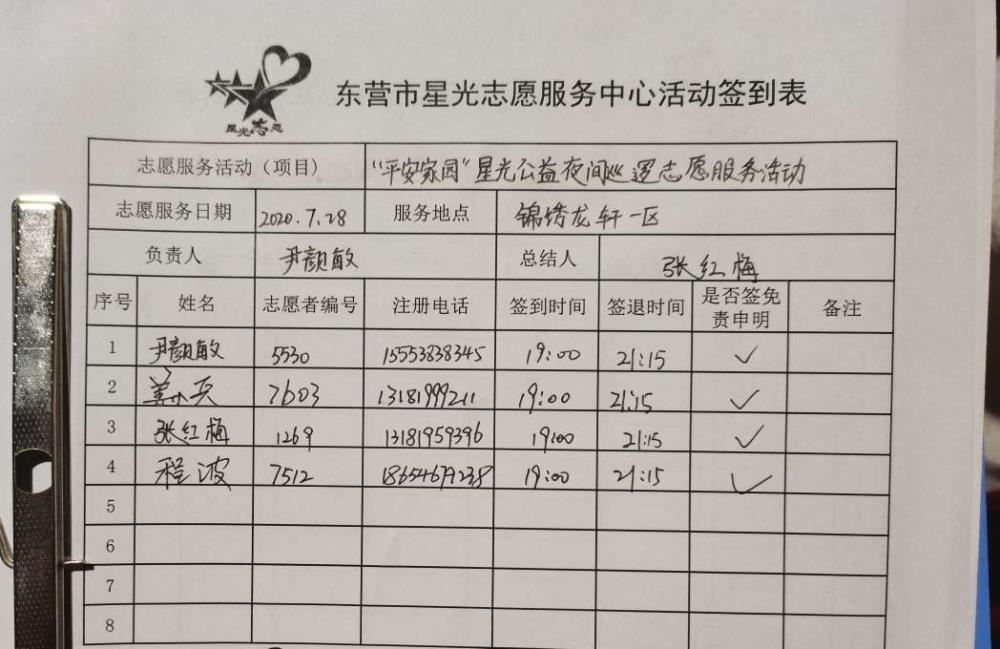 星光志愿
东营市星光志愿服务中心活动签到表
志愿服务活动（项目） “平安家园”星光公益夜间巡逻志愿服务活动
志愿服务日期 2020.7.28 服务地点 锦绣龙轩一区
负责人 尹颜敏 总结人 张红梅
序号 姓名 志愿者编号 注册电话 签到时间 签退时间 是否签免责申明 备注
1 尹颜敏 5530 15553838345 19:00 21:15 ✓
2 7603 13181999211 19:00 21:15 ✓
3 张红梅 1269 13181959396 19:00 21:15 ✓
4 程波 7512 19:00 21:15 ✓
5
6
7
8